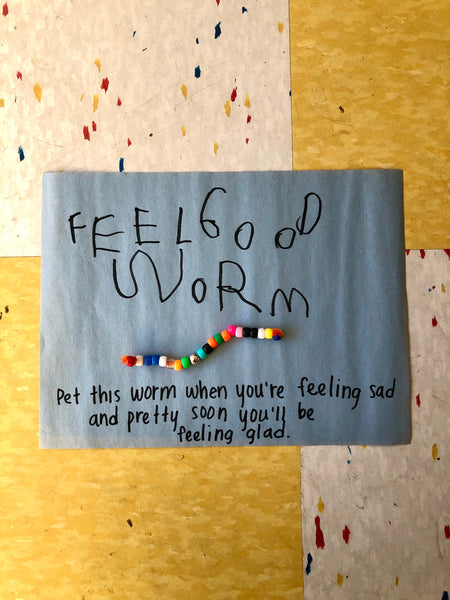 FEELGOOD
WORM
Pet this worm when you're feeling sad
and pretty soon you'll be
feeling glad.